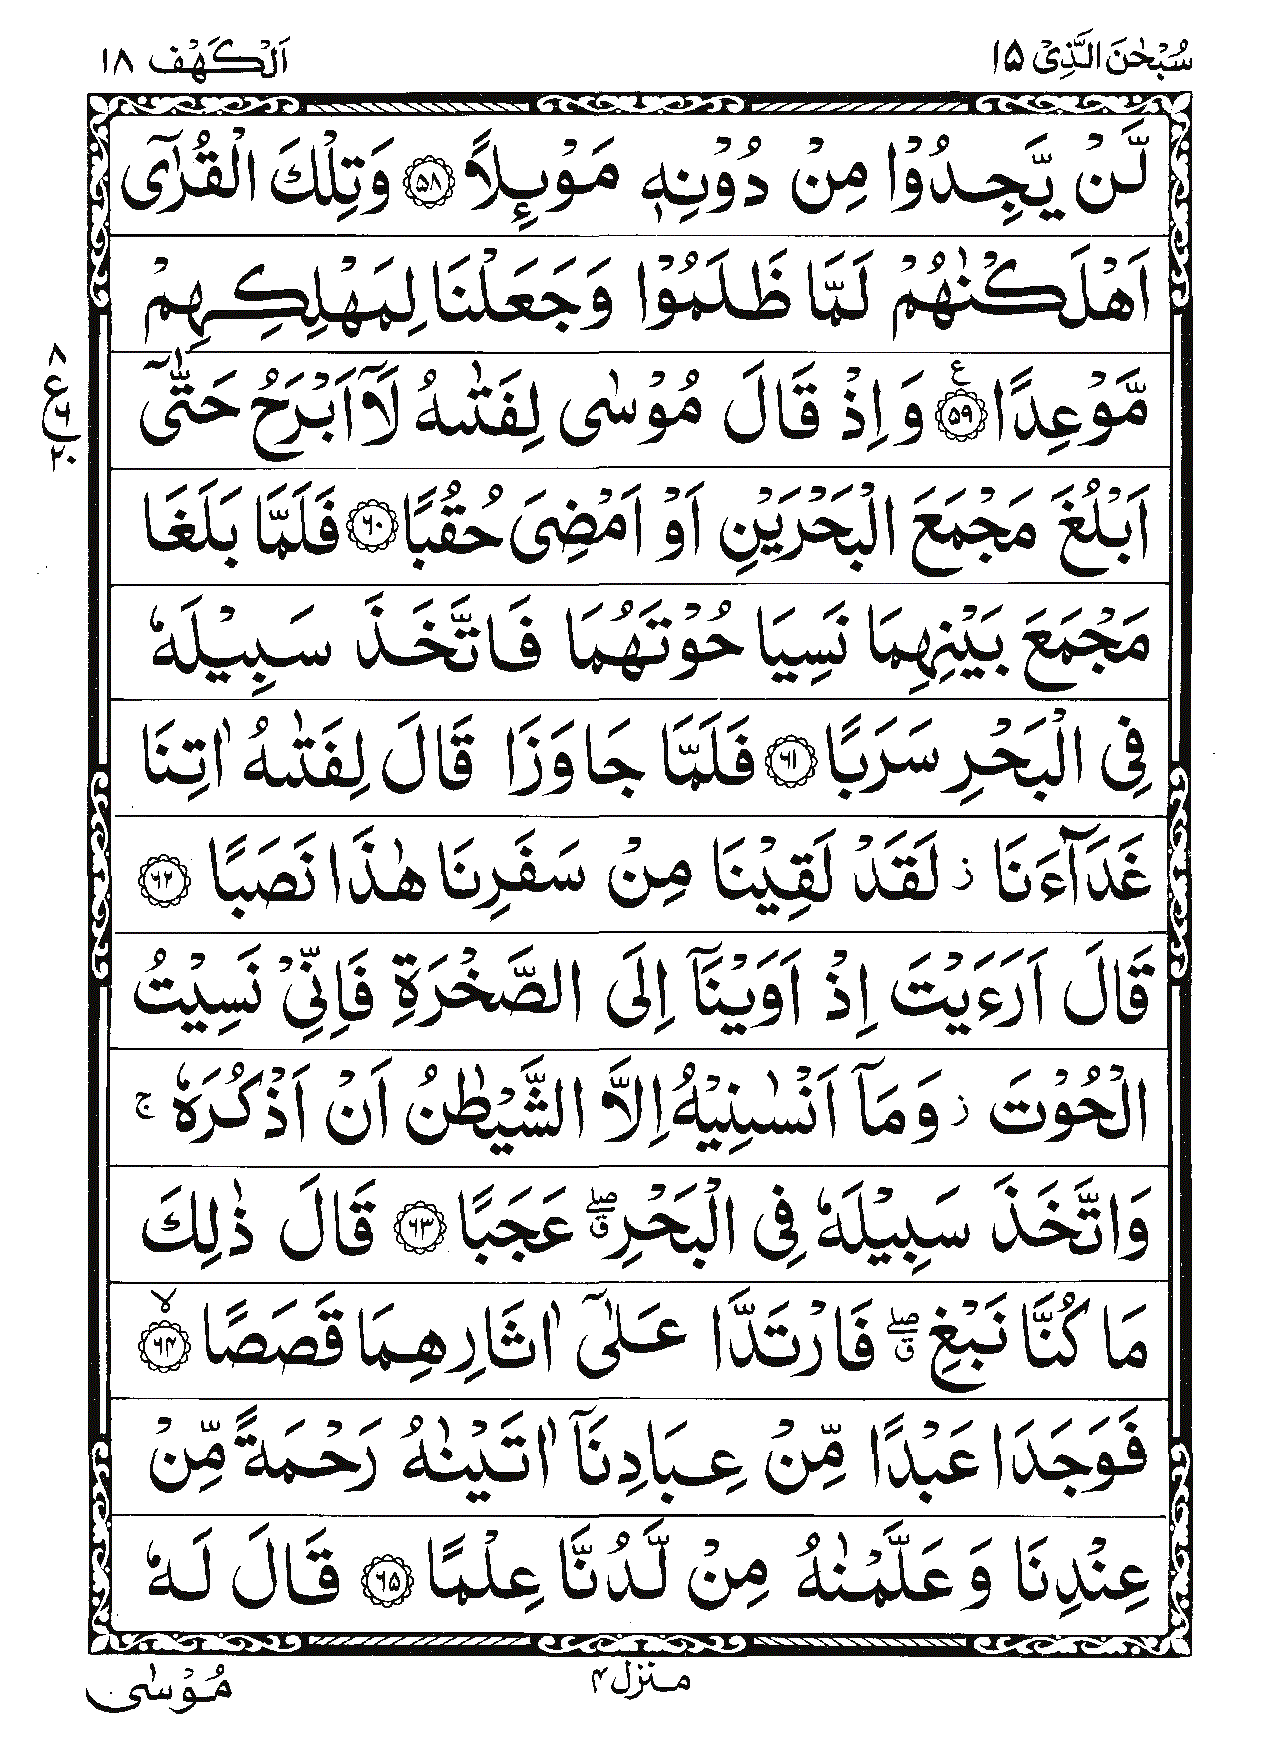 سُبْحٰنَ الَّذِیْۤ ۱۵
اَلْکَهْف ۱۸
لَّنْ یَّجِدُوْا مِنْ دُوْنِهٖ مَوْىِٕلًا ﴿۵۸﴾ وَتِلْكَ الْقُرٰۤی
اَهْلَكْنٰهُمْ لَمَّا ظَلَمُوْا وَجَعَلْنَا لِمَهْلِكِهِمْ
مَّوْعِدًا ﴿۵۹﴾ ع وَاِذْ قَالَ مُوْسٰی لِفَتٰىهُ لَاۤ اَبْرَحُ حَتّٰۤی
۸ ع ۶ ۲۰
اَبْلُغَ مَجْمَعَ الْبَحْرَیْنِ اَوْ اَمْضِیَ حُقُبًا ﴿۶۰﴾ فَلَمَّا بَلَغَا
مَجْمَعَ بَیْنِهِمَا نَسِیَا حُوْتَهُمَا فَاتَّخَذَ سَبِیْلَهٗ
فِی الْبَحْرِ سَرَبًا ﴿۶۱﴾ فَلَمَّا جَاوَزَا قَالَ لِفَتٰىهُ اٰتِنَا
غَدَآءَنَا ز لَقَدْ لَقِیْنَا مِنْ سَفَرِنَا هٰذَا نَصَبًا ﴿۶۲﴾
قَالَ اَرَءَیْتَ اِذْ اَوَیْنَاۤ اِلَی الصَّخْرَةِ فَاِنِّیْ نَسِیْتُ
الْحُوْتَ ز وَمَاۤ اَنْسٰىنِیْهُ اِلَّا الشَّیْطٰنُ اَنْ اَذْكُرَهٗ ج
وَاتَّخَذَ سَبِیْلَهٗ فِی الْبَحْرِ صلے ق عَجَبًا ﴿۶۳﴾ قَالَ ذٰلِكَ
مَا كُنَّا نَبْغِ صلے ق فَارْتَدَّا عَلٰۤی اٰثَارِهِمَا قَصَصًا ﴿۶۴﴾ لا
فَوَجَدَا عَبْدًا مِّنْ عِبَادِنَاۤ اٰتَیْنٰهُ رَحْمَةً مِّنْ
عِنْدِنَا وَعَلَّمْنٰهُ مِنْ لَّدُنَّا عِلْمًا ﴿۶۵﴾ قَالَ لَهٗ
منزل ۴
مُوْسٰی